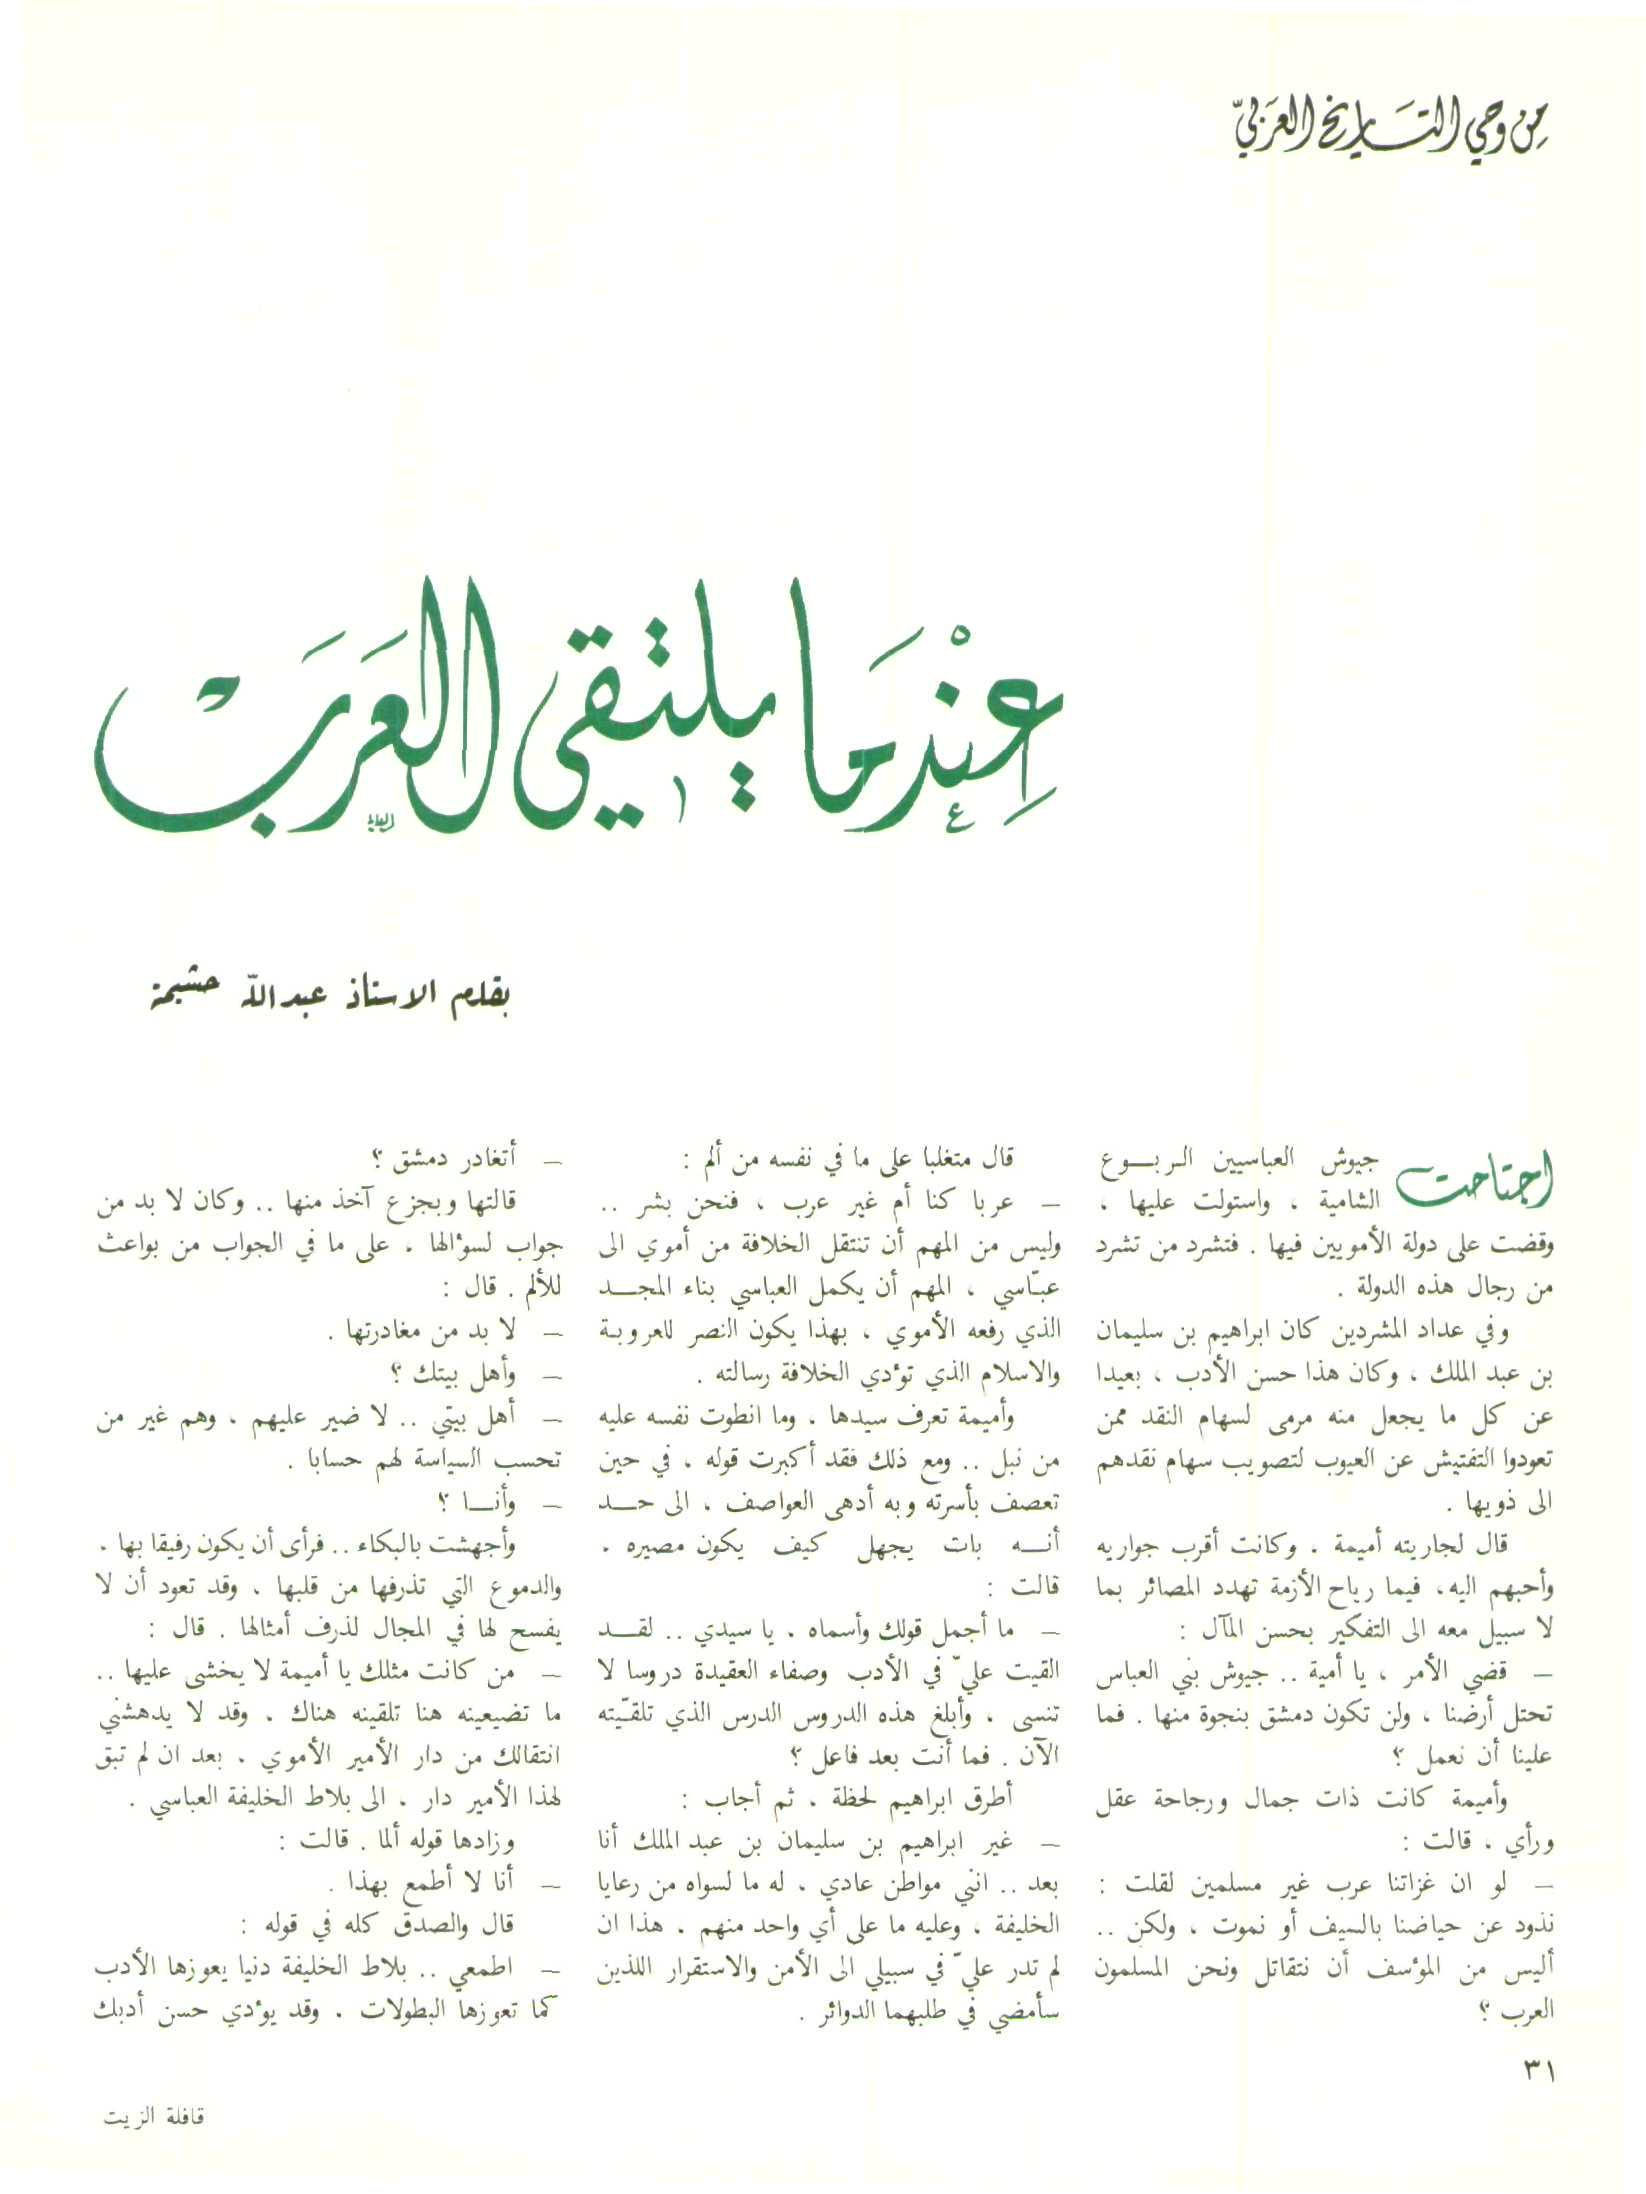 من وحي التاريخ العربي
عندما يلتقي العرب
بقلم الاستاذ عبدالله حشيمة
اجتاحت جيوش العباسيين الربوع
الشامية ، واستولت عليها ،
وقضت على دولة الأمويين فيها . فتشرد من تشرد
من رجال هذه الدولة .
وفي عداد المشردين كان ابراهيم بن سليمان
بن عبد الملك ، وكان هذا حسن الأدب ، بعيدا
عن كل ما يجعل منه مرمى لسهام النقد ممن
تعودوا التفتيش عن العيوب لتصويب سهام نقدهم
الى ذويها .
قال لجاريته أميمة ، وكانت أقرب جواريه
وأحبهم اليه، فيما رياح الأزمة تهدد المصائر بما
لا سبيل معه الى التفكير بحسن المآل :
— قضي الأمر ، يا أمية .. جيوش بني العباس
تحتل أرضنا ، ولن تكون دمشق بنجوة منها . فما
علينا أن نعمل ؟
وأميمة كانت ذات جمال ورجاحة عقل
ورأي ، قالت :
— لو ان غزاتنا عرب غير مسلمين لقلت :
نذود عن حياضنا بالسيف أو نموت ، ولكن ..
أليس من المؤسف أن نتقاتل ونحن المسلمون
العرب ؟
قال متغلبا على ما في نفسه من ألم :
— عربا كنا أم غير عرب ، فنحن بشر ..
وليس من المهم أن تنتقل الخلافة من أموي الى
عبّاسي ، المهم أن يكمل العباسي بناء المجد
الذي رفعه الأموي ، بهذا يكون النصر للعروبة
والاسلام الذي تؤدي الخلافة رسالته .
وأميمة تعرف سيدها ، وما انطوت نفسه عليه
من نبل .. ومع ذلك فقد أكبرت قوله ، في حين
تعصف بأسرته وبه أدهى العواصف ، الى حد
أنه بات يجهل كيف يكون مصيره ،
قالت :
— ما أجمل قولك وأسماه ، يا سيدي .. لقد
القيت عليّ في الأدب وصفاء العقيدة دروسا لا
تنسى ، وأبلغ هذه الدروس الدرس الذي تلقّيته
الآن . فما أنت بعد فاعل ؟
أطرق ابراهيم لحظة ، ثم أجاب :
— غير ابراهيم بن سليمان بن عبد الملك أنا
بعد .. انني مواطن عادي ، له ما لسواه من رعايا
الخليفة ، وعليه ما على أي واحد منهم . هذا ان
لم تدر عليّ في سبيلي الى الأمن والاستقرار اللذين
سأمضي في طلبهما الدوائر .
— أتغادر دمشق ؟
قالتها وبجزع آخذ منها .. وكان لا بد من
جواب لسؤالها ، على ما في الجواب من بواعث
للألم . قال :
— لا بد من مغادرتها .
— وأهل بيتك ؟
— أهل بيتي .. لا ضير عليهم ، وهم غير من
تحسب السياسة لهم حسابا .
— وأنا ؟
وأجهشت بالبكاء .. فرأى أن يكون رفيقا بها ،
والدموع التي تذرفها من قلبها ، وقد تعود أن لا
يفسح لها في المجال لذرف أمثالها . قال :
— من كانت مثلك يا أميمة لا يخشى عليها ..
ما تضيعينه هنا تلقينه هناك ، وقد لا يدهشني
انتقالك من دار الأمير الأموي ، بعد ان لم تبق
لهذا الأمير دار ، الى بلاط الخليفة العباسي .
وزادها قوله ألما . قالت :
— أنا لا أطمع بهذا .
قال والصدق كله في قوله :
— اطمعي .. بلاط الخليفة دنيا يعوزها الأدب
كما تعوزها البطولات ، وقد يؤدي حسن أدبك
٣١
قافلة الزيت